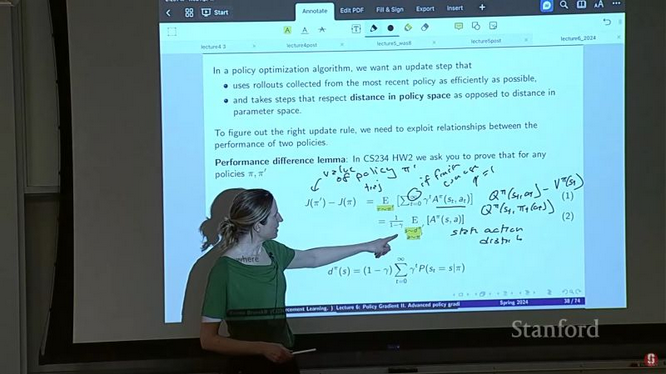 Start
Annotate
Edit PDF
Fill & Sign
Export
Insert
lecture4 3
lecture4post
lecture5_was8
lecture5post
lecture6_2024
In a policy optimization algorithm, we want an update step that
• uses rollouts collected from the most recent policy as efficiently as possible,
• and takes steps that respect distance in policy space as opposed to distance in
parameter space.
To figure out the right update rule, we need to exploit relationships between the
performance of two policies.
Performance difference lemma: In CS234 HW2 we ask you to prove that for any
policies π, π′
value
of policy π'
traj
if finite
γ=1
J(π′) − J(π) = E [∑ γᵗ A^π(sₜ, aₜ)] (1)
Q^π(sₜ,aₜ) − V^π(sₜ)
= 1/(1−γ) E [A^π(s, a)] (2)
state action
where
d^π(s) = (1 − γ) ∑_{t=0}^∞ γᵗ P(sₜ = s|π)
Lecture 6: Policy Gradient II. Advanced policy gradi
Spring 2024
38 / 74
Stanford